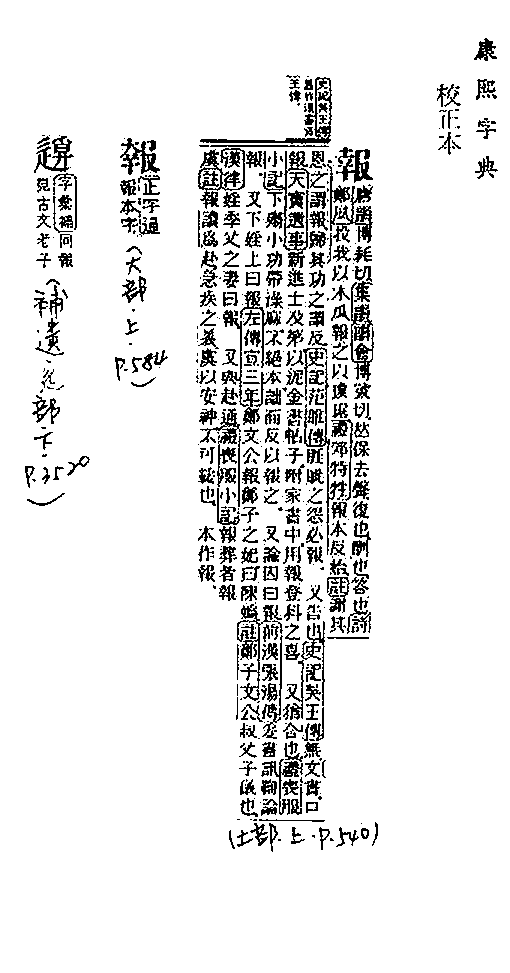 康熙字典
校正本
史記吳王傳
王偉
報
唐韻博耗切集韻韻會博號切𠀤保去聲復也酬也答也詩
鄭風投我以木瓜報之以瓊琚禮郊特牲報本反始註謝其
恩之謂報歸其功之謂反史記范雎傳睚眦之怨必報 又告也史記吳王傳無文書口
報天寶遺事新進士及第以泥金書帖子附家書中用報登科之喜 又猶合也禮喪服
小記下殤小功帶澡麻不絕本詘而反以報之 又論囚曰報前漢張湯傳爰書訊鞫論
報 又下婬上曰報左傳宣三年鄭文公報鄭子之妃曰陳嬀註鄭子文公叔父子儀也
漢律婬季父之妻曰報 又與赴通禮喪服小記報葬者報
虞註報讀爲赴急疾之義虞以安神不可緩也 本作報
(土部.上.P.540)
報
正字通
報本字
(大部.上.P.584)
字彙補同報
見古文老子
(補遺.辵部.下.P.3520)